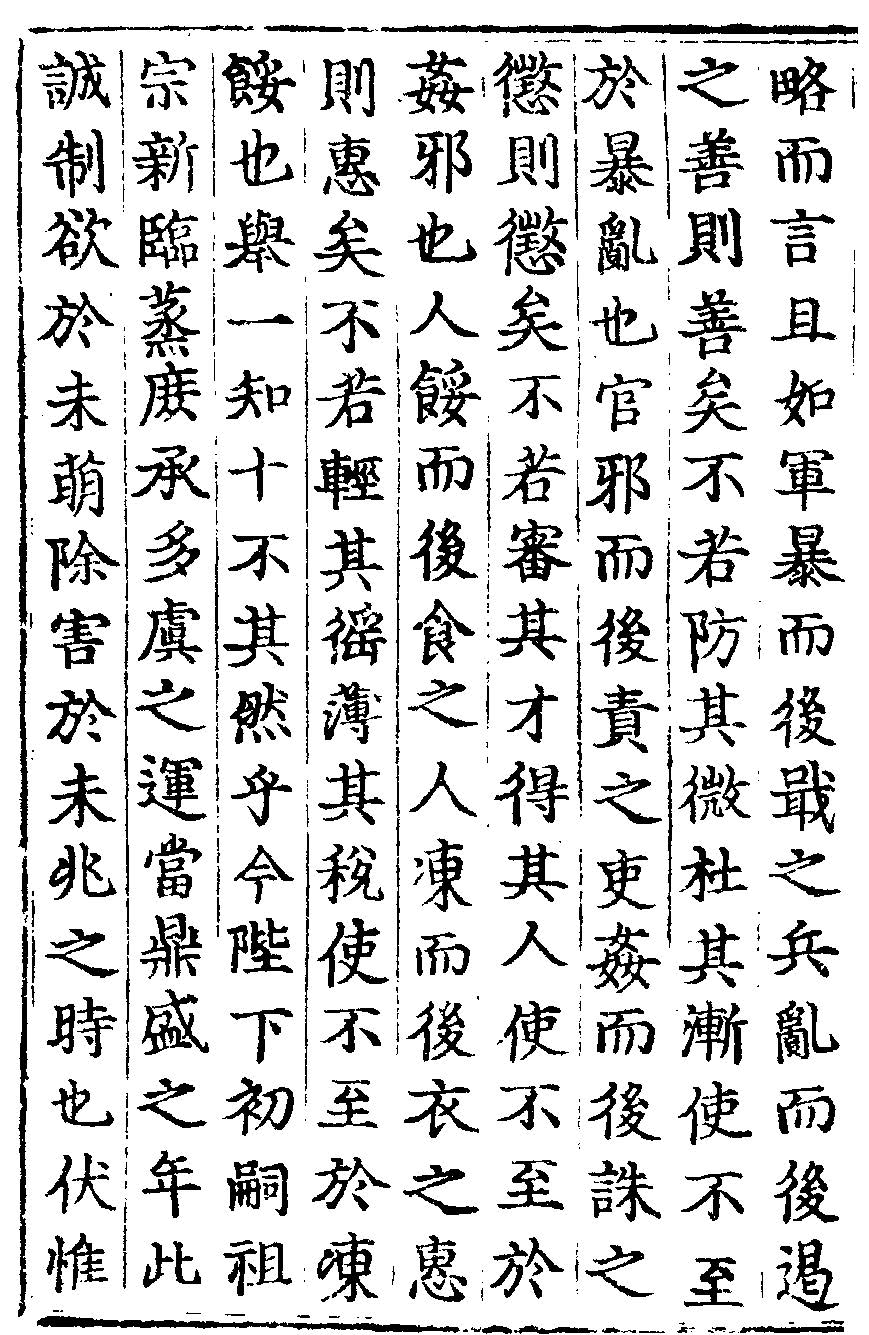 略而言且如軍暴而後戢之兵亂而後遏
之善則善矣不若防其微杜其漸使不至
於暴亂也官邪而後責之吏姦而後誅之
懲則懲矣不若審其才得其人使不至於
姦邪也人餒而後食之人凍而後衣之惠
則惠矣不若輕其徭薄其稅使不至於凍
餒也舉一知十不其然乎今陛下初嗣祖
宗新臨蒸庶承多虞之運當鼎盛之年此
誠制欲於未萌除害於未兆之時也伏惟